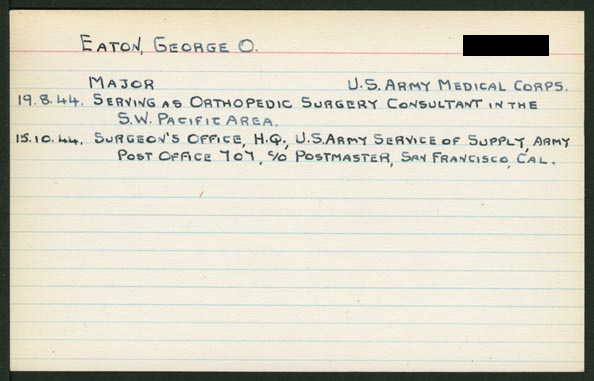 EATON, GEORGE O.
MAJOR U.S. ARMY MEDICAL CORPS.
19.8.44. SERVING AS ORTHOPEDIC SURGERY CONSULTANT IN THE
S.W. PACIFIC AREA.
15.10.44. SURGEON'S OFFICE, H.Q., U.S. ARMY SERVICE OF SUPPLY, ARMY
POST OFFICE 707, C/O POSTMASTER, SAN FRANCISCO, CAL.